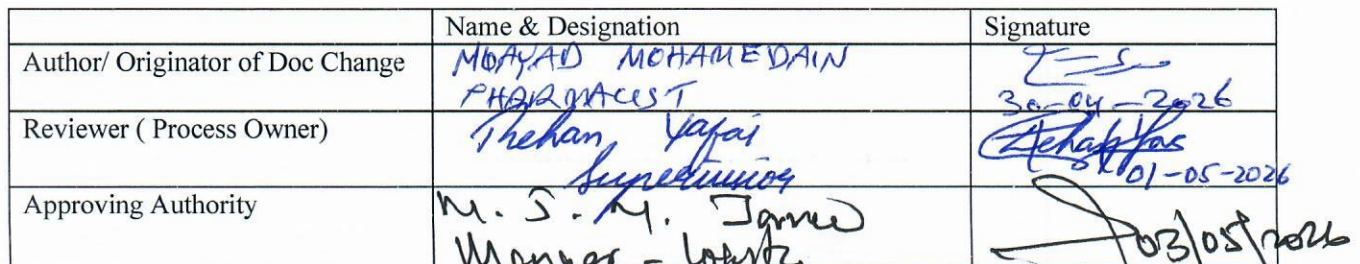 Name & Designation Signature
Author/ Originator of Doc Change MOAYAD MOHAMEDAIN
PHARMACIST 30-04-2026
Reviewer ( Process Owner) Thehan Yafai
Supervisor 01-05-2026
Approving Authority M. J. M. 03/05/2026
Manager -